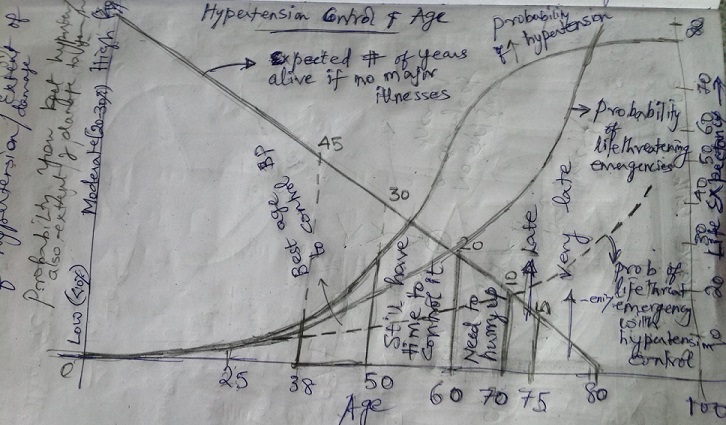 Hypertension Control & Age
probability
of hypertension
Expected # of years
alive if no major
illnesses
High
Moderate (20-30%)
Low (<10%)
hypertension / Extent of
damage
Probability you
also extent of damage
45
30
20
10
5
Best age
to control BP
Still have
time to
control it
Need to
hurry up
Late
Very late
Probability
of
lifethreatening
emergencies
prob of
lifethreat
emergency
with
hypertension
control
80
70
60
50
40
30
20
10
Life Expectancy
0
25
38
50
60
70
75
80
100
Age